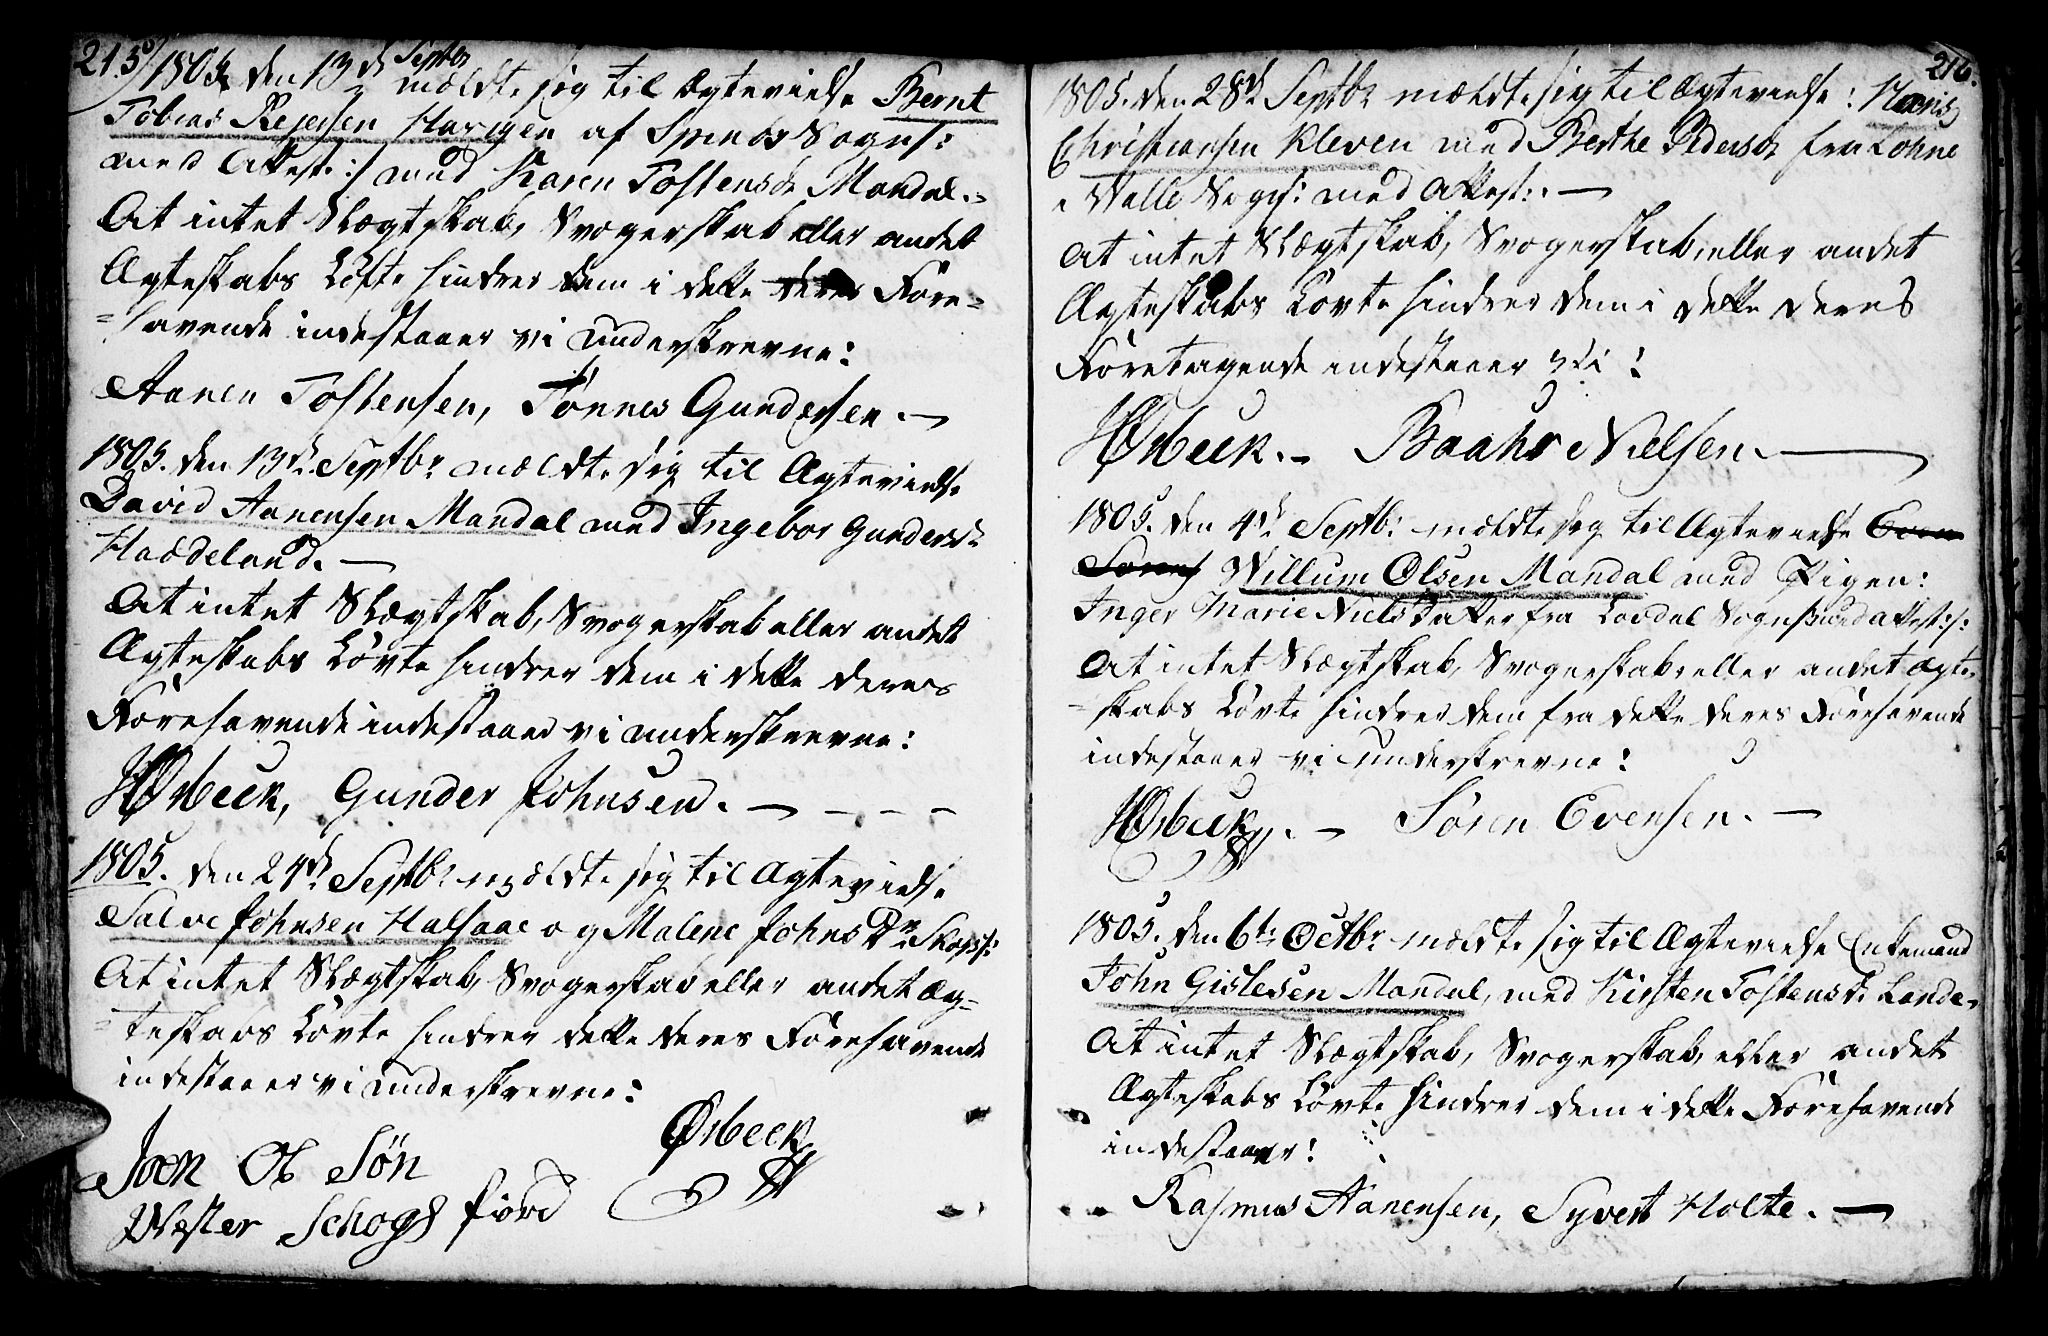 215
1805 den 13de Septbr mældte sig til Ægtevielse Bernt
Tobias Rejersen Harigen af Spinds Sogn /:
med Attest:/ med Karen Tostensdr Mandal.
At intet Slægtskab, Svogerskab eller andet
Ægteskabs Løfte hindrer dem i dette deres Fore-
=havende indestaaer vi underskrevne:
Aanen Tostensen, Tønnes Gundersen.
1805. den 13de Septbr mældte sig til Ægtevielse
David Aanensen Mandal med Ingebor Gundersdr
Haadeland.
At intet Slægtskab, Svogerskab eller andet
Ægteskabs Løvte hindrer dem i dette deres
Forehavende indestaaer vi underskrevne:
HØrbeck, Gunder Johnsen.
1805. den 24de Septbr mældte sig til Ægtevielse
Salve Johnsen Halsaae og Malene Johnsdr
At intet Slægtskab, Svogerskab eller andet Æg-
=teskabs Løvte hindrer dette deres Forehavende
indestaaer vi underskrevne:
Joen Ols Søn
Ørbeck
Wester Schogsfiord
216.
1805. den 28de Septbr mældte sig til Ægtevielse: Hans
Christiansen Kleven med Berthe Pedersdr fra Lohne
i Walle Sogn/: med Attest:.
At intet Slægtskab, Svogerskab, eller andet
Ægteskabs Løvte hindrer dem i dette deres
Foretagende indestaaer vi:
HØrbeck. Baahr Nielsen.
1805. den 4de Septb: mældte sig til Ægtevielse Even
Sørens Willum Olsen Mandal med Pigen:
Inger Marie Niels Datter fra Sogn med Attest:/:
At intet Slægtskab, Svogerskab, eller andet Ægte-
=skabs Løvte hindrer dem fra dette deres Forehavende
indestaaer vi underskrevne:
HØrbeck. Sören Evensen.
1805. den 6te Octbr mældte sig til Ægtevielse Enkemand
John Gislesen Mandal, med Kirsten Tostensdr Lande.
At intet Slægtskab, Svogerskab, eller andet
Ægteskabs Løvte hindrer dem i dette Forehavende
indestaaer:
Rasmus Aanensen, Syvert Holte.